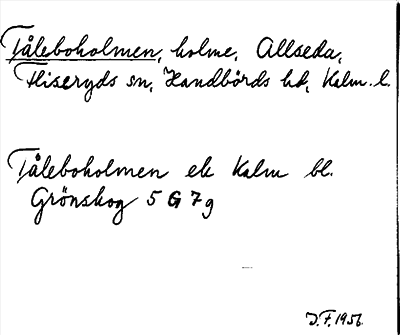 Tåleboholmen, holme, Allseda,
Fliseryds sn, Handbörds hd, Kalm. l.
Tåleboholmen ek Kalm bl.
Grönskog 5 G 7 g
J.F. 1956